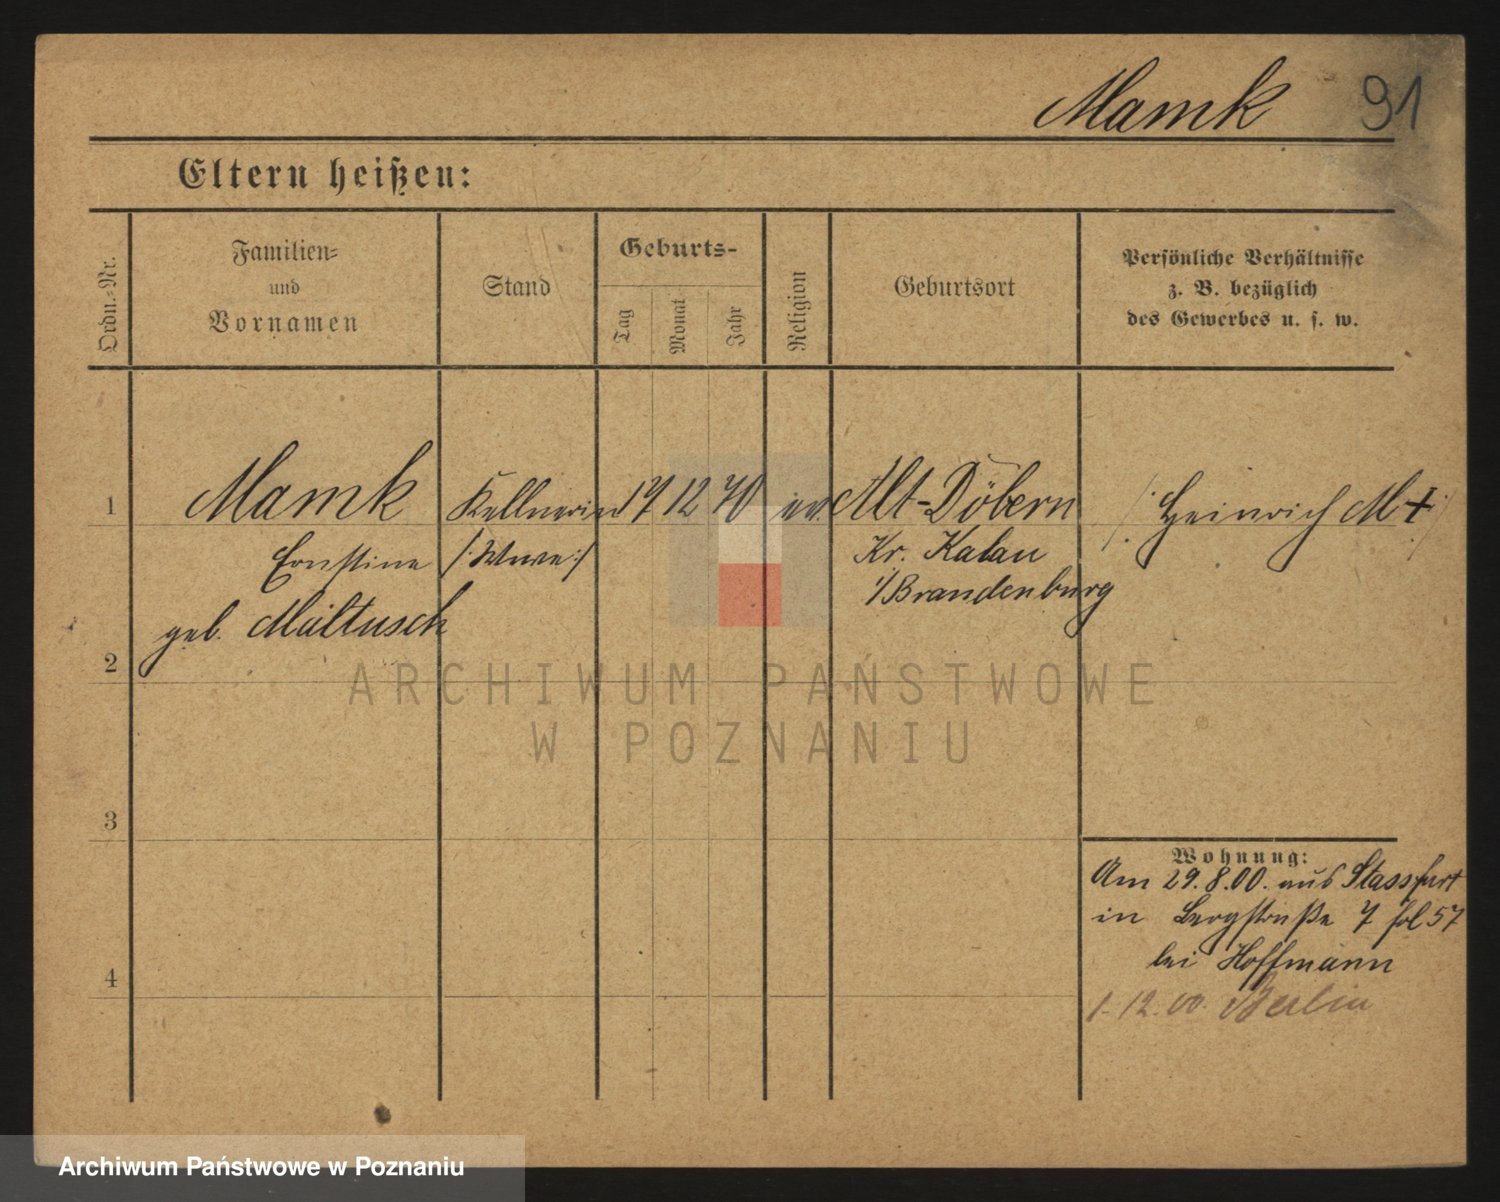 Mamk 91
Eltern heißen:
Ordn.-Nr.
Familien-
und
Vornamen
Stand
Geburts-
Tag
Monat
Jahr
Religion
Geburtsort
Persönliche Verhältnisse
z. B. bezüglich
des Gewerbes u. s. w.
1 Mamk Kellnerin 17 12 70 ev. Alt-Döbern /: Heinrich M † :/
Ernstine /: Wwe :/ Kr. Kalau
i/Brandenburg
geb. Maltusch
2
ARCHIWUM PAŃSTWOWE
W POZNANIU
3
Wohnung:
Am 29.8.00. aus Stassfurt
in Bergstraße 7 fol 57
bei Hoffmann
4
1.12.00. Berlin
Archiwum Państwowe w Poznaniu